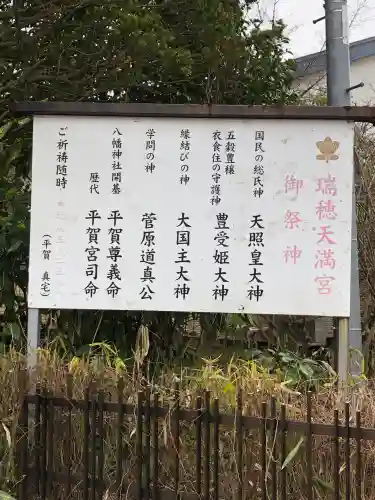 瑞穂天満宮
御祭神
国民の総氏神 天照皇大神
五穀豊穣
衣食住の守護神 豊受姫大神
縁結びの神 大国主大神
学問の神 菅原道真公
八幡神社開墓 平賀尊義命
歴代 平賀宮司命
ご祈祷随時
(平賀 真宅)